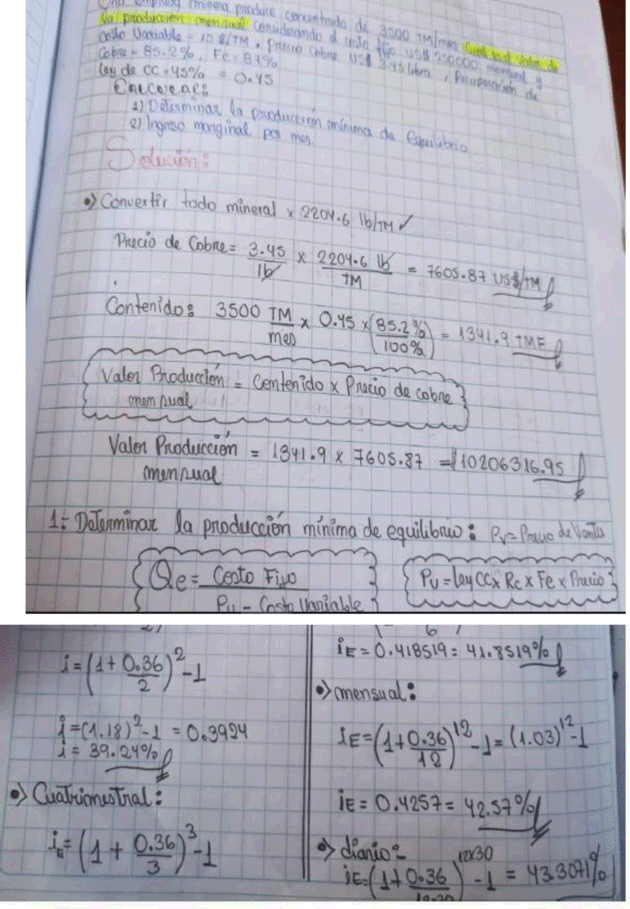 Una empresa minera produce concentrado de 3500 TM/mes Cual es el valor de
la producción mensual considerando el costo fijo US$ 250000 mensual y
Costo Variable = 10 $/TM. Precio Cobre US$ 3.45 libra, Recuperación de
Cobre = 85.2%, Fe = 87%
Ley de CC = 45% = 0.45
1) Determinar la producción mínima de Equilibrio
2) Ingreso marginal por mes.
Solución:
•) Convertir todo mineral x 2204.6 lb/TM ✓
Precio de Cobre = 3.45/lb x 2204.6 lb/TM = 7605.87 US$/TM
Contenido: 3500 TM/mes x 0.45 x (85.2%/100%) = 1341.9 TMF
Valor Producción mensual = Contenido x Precio de cobre
Valor Producción mensual = 1341.9 x 7605.87 = 10206316.95
1:- Determinar la producción mínima de equilibrio: Pv= Precio de Venta
Qe = Costo Fijo / Pv - Costo Variable
Pv = Ley CC x Rc x Fe x Precio
i = (1 + 0.36/2)^2 - 1
i = (1.18)^2 - 1 = 0.3924
i = 39.24%
•) Cuatrimestral:
iE = (1 + 0.36/3)^3 - 1
iE = 0.418519 = 41.8519%
•) mensual:
iE = (1 + 0.36/12)^12 - 1 = (1.03)^12 - 1
iE = 0.4257 = 42.57%
•) diario:
iE = (1 + 0.36/12x30)^12x30 - 1 = 43.3071%